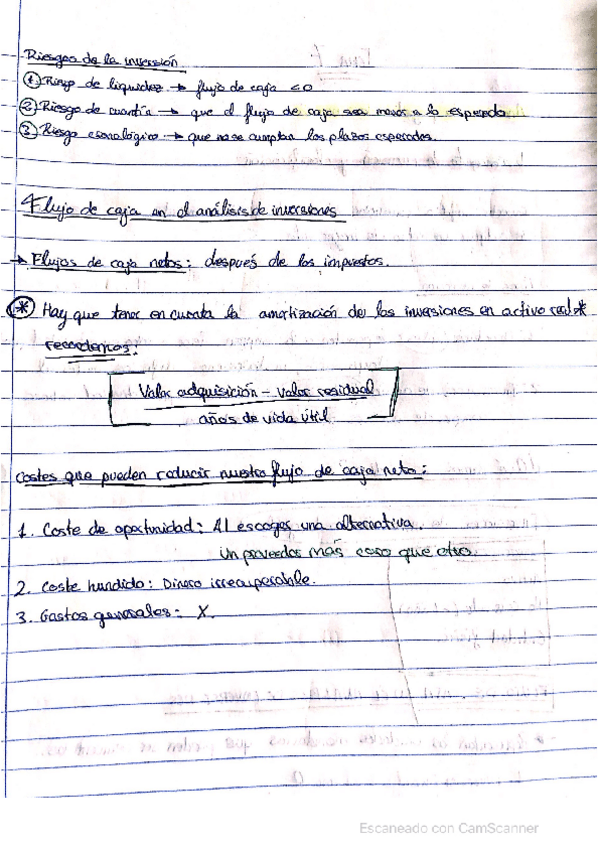 Riesgos de la inversión
① Riesgo de liquidez → flujo de caja <0
② Riesgo de cuantía → que el flujo de caja sea menos a lo esperado
③ Riesgo cronológico → que no se cumplan los plazos esperados.
Flujo de caja en el análisis de inversiones
→ Flujos de caja netos: después de los impuestos.
* Hay que tener en cuenta la amortización de las inversiones en activo real *
recordemos:
Valor adquisición - valor residual
años de vida útil
Costes que pueden reducir nuestro flujo de caja neto:
1. Coste de oportunidad: Al escoger una alternativa.
Un proveedor más caro que otro.
2. Coste hundido: Dinero irrecuperable.
3. Gastos generales: X.
Escaneado con CamScanner